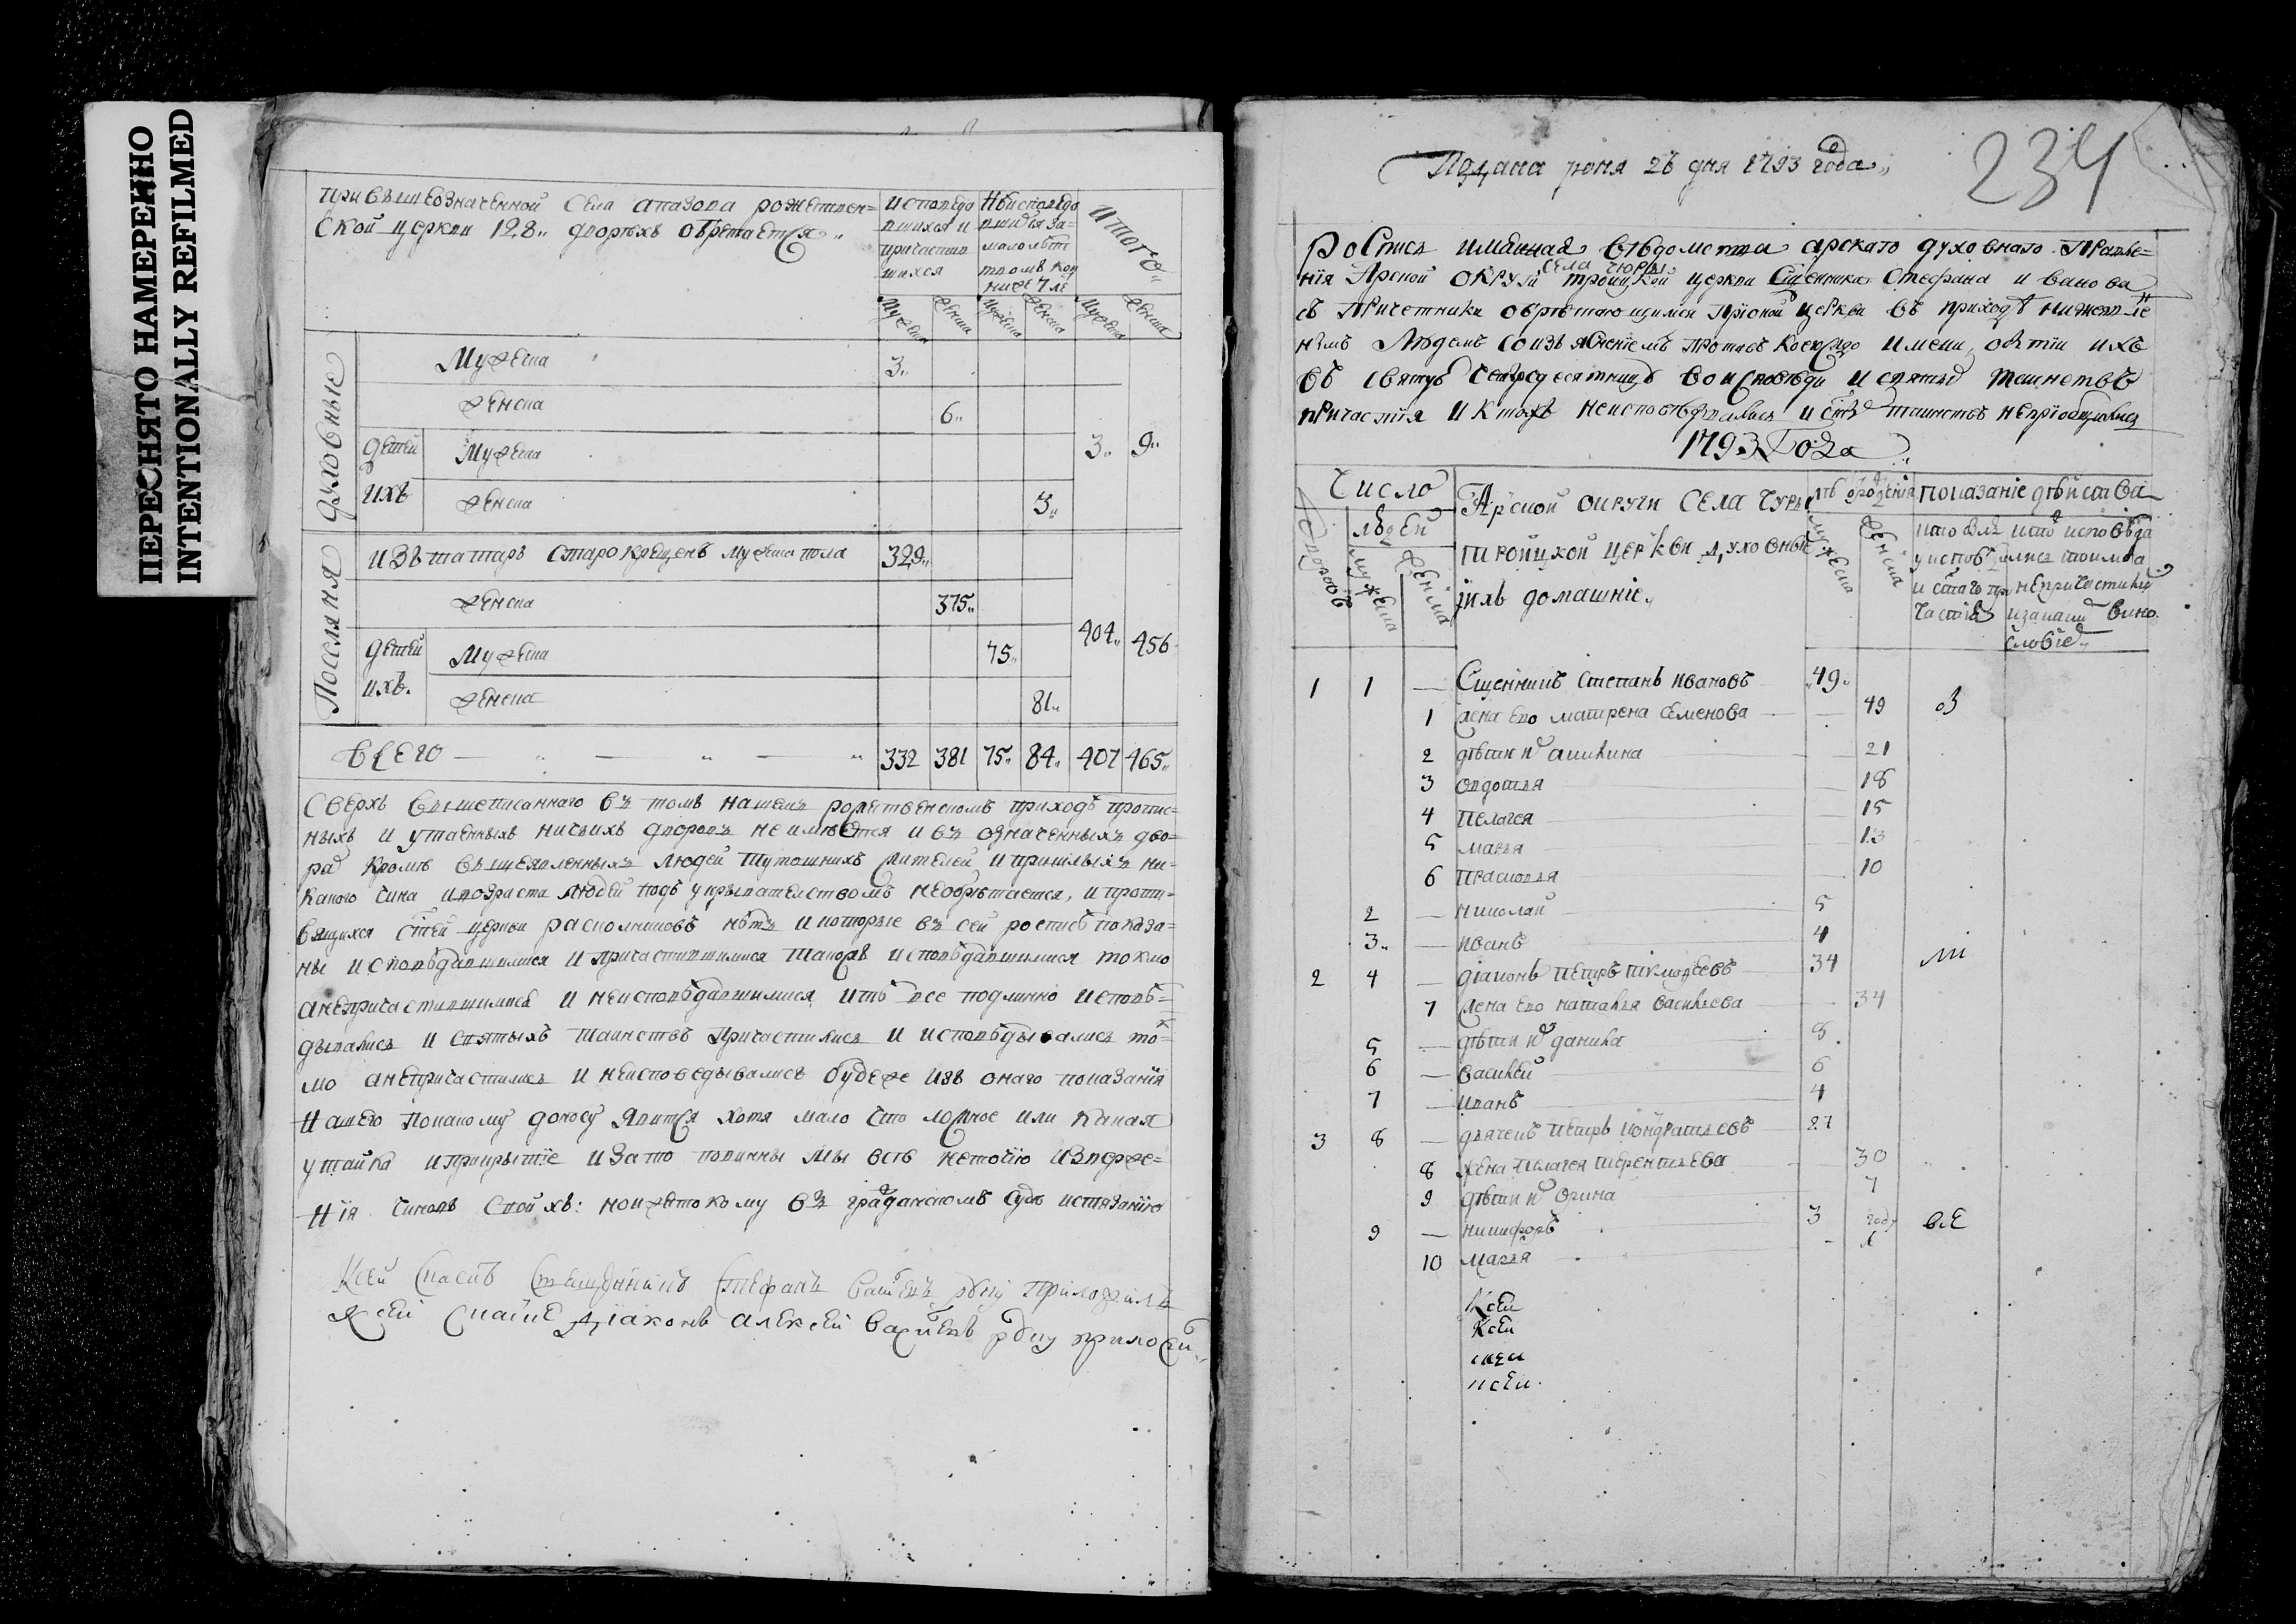 ПЕРЕСНЯТО НАМЕРЕННО
INTENTIONALLY REFILMED
При вышеозначенной села апазова рожествен=
ской церкви 128,, дворѣхъ обретаетСя,,
исповеда
вшихся и
причастив
шихся
Неисповеда
вшихся за
малолѣт
ствомъ кои
ниже 7 ле
итого
Мужеска
Женска
Мужеска
Женска
Мужеска
Женска
духовные
Мужеска 3,,
Женска 6,,
детей
ихъ
Мужеска
3,, 9,,
Женска 3,,
Поселяня
изъ татаръ старокрещенъ мужеска пола 329,,
Женска 375,,
404,, 456
детей
ихъ.
Мужеска 75,,
Женска 81,,
всего 332 381 75,, 84,, 407 465,,
сверхъ вышеписаннаго въ томъ нашемъ рожественскомъ приходѣ пропис=
ныхъ и утаенныхъ ничьихъ дворовъ неимѣется и въ означенныхъ дво=
ра кромѣ вышеявленныхъ людей тутошнихъ жителей и пришлыхъ ни=
какого чина ивозраста людей подъ укрывателствомъ необрѣтается, и проти=
вящихся стѣй церкви расколниковъ нѣтъ и которые въ сей росписѣ показа=
ны исповѣдавшимися и причастившимися такожъ исповѣдавшимися токмо
анепричастившимися и неисповѣдавшимися итѣ все подлинно исповѣ=
дывались и святыхъ таинствъ причастились и исповѣдывались ток=
мо анепричастились и неисповедывались будеже изъ онаго показанія
нашего покакому доносу явится хотя мало что ложное или какая
утайка иприкрытіе и зато повинны мы есть неточію изверже=
нія чиновъ своихъ: ноижетокому въ гражданскомъ судѣ истязанію
Ксей Стефанъ руку приложилъ
Ксей диаконъ алексей руку приложи,,
234
Подана июня 26 дня 1793 года,,
роспись имянная вѣдомства арскаго духовнаго правле=
нія Арской округи села чюры троицкой церкви Сщенника Стефана иванова
съ причетники обрѣтающимся прионой церкви въ приходѣ нижеявле
нымъ людемъ соизъясненіемъ противъ коегождо имени, обытіи ихъ
въ святую четыредесятницу воисповѣди и святых таинствъ
причастія и ктожъ неисповѣдывались и стых таинствъ непріобщились
1793 Года
Число
дворовъ
людей
мужеска
женска
Арской округи села чуры
троицкой церкви духовные
иихъ домашніе,,
лѣтъ отрожденія
мужеска
женска
показаніе дѣйства
кто былъ
уисповѣ
и стаго при
частія
кто исповѣда
лись толко а
непричастились
изакакимъ вино
словіем
1 1 — Сщенникъ степанъ ивановъ 49,,
1 жена ево матрена семенова 49 в
2 дѣти их акилина 21
3 овдотья 18
4 пелагея 15
5 марья 13
6 прасковья 10
2 — николай 5
3,, — иванъ 4
2 4 — діаконъ петръ тимофеевъ 34 ли
7 жена ево наталья васильева 34
5 — дѣти их данила 8
6 — василей 6
7 — иванъ 4
3 8 — дьячекъ петръ кондратьевъ 27
8 жена пелагея терентьева 30
9 дѣти их орина 7
9 — никифоръ 3 году все
10 марья 1
Ксей
Ксей
ксей
ксей